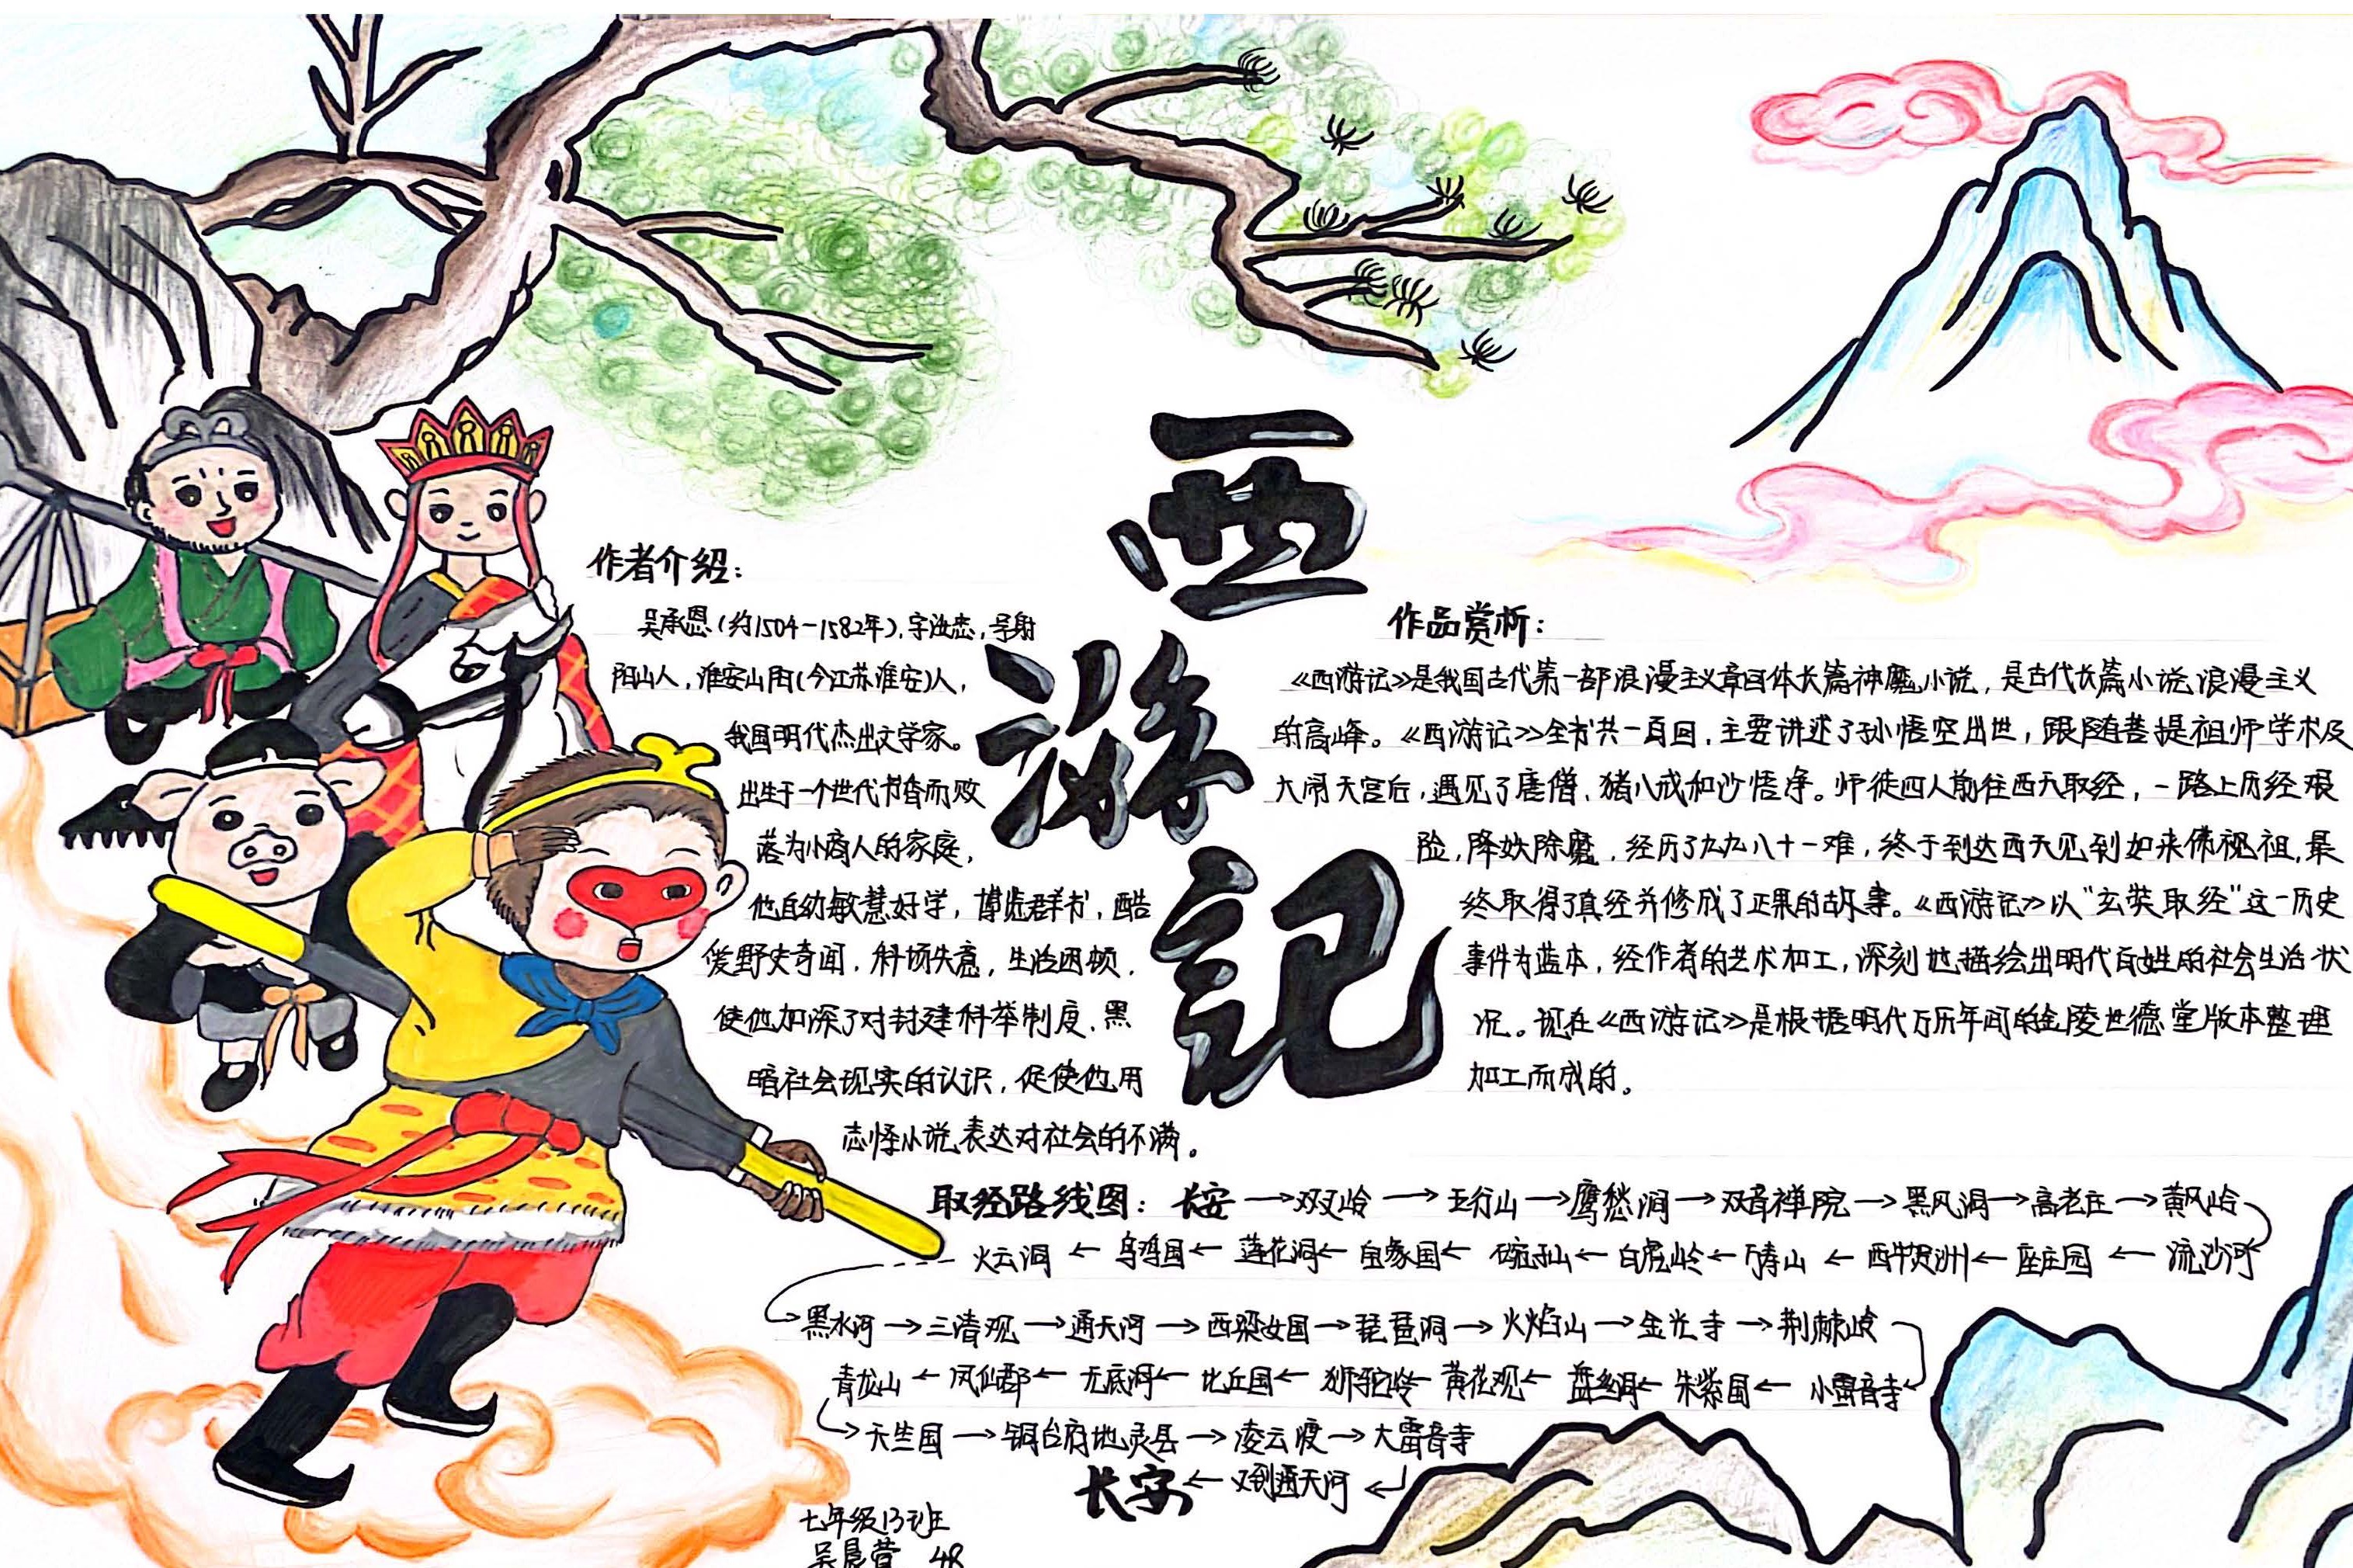 西游記
作者介绍：
吴承恩(约1504-1582年),字汝忠,号射
阳山人，淮安山阳(今江苏淮安)人，
我国明代杰出文学家。
出生于一个世代书香而败
落为小商人的家庭，
他自幼敏慧好学，博览群书，酷
爱野史奇闻，科场失意，生活困顿，
使他加深了对封建科举制度、黑
暗社会现实的认识，促使他用
志怪小说表达对社会的不满。
作品赏析：
《西游记》是我国古代第一部浪漫主义章回体长篇神魔小说，是古代长篇小说浪漫主义
的高峰。《西游记》全书共一百回，主要讲述了孙悟空出世，跟随菩提祖师学术及
大闹天宫后，遇见了唐僧、猪八戒和沙悟净。师徒四人前往西天取经，一路上历经艰
险，降妖除魔，经历了九九八十一难，终于到达西天见到如来佛祖，最
终取得了真经并修成了正果的故事。《西游记》以“玄奘取经”这一历史
事件为蓝本，经作者的艺术加工，深刻地描绘出明代百姓的社会生活状
况。现在《西游记》是根据明代万历年间的金陵世德堂版本整理
加工而成的。
取经路线图：长安→双叉岭→五行山→鹰愁涧→观音禅院→黑风洞→高老庄→黄风岭
火云洞←乌鸡国←莲花洞←宝象国←碗子山←白虎岭←万寿山←西牛贺洲←座庄园←流沙河
黑水河→三清观→通天河→西梁女国→琵琶洞→火焰山→金光寺→荆棘岭
青龙山←凤仙郡←无底洞←比丘国←狮驼岭←黄花观←盘丝洞←朱紫国←小雷音寺
天竺国→铜台府地灵县→凌云渡→大雷音寺
长安←又到通天河←
七年级13班
吴晨萱 48